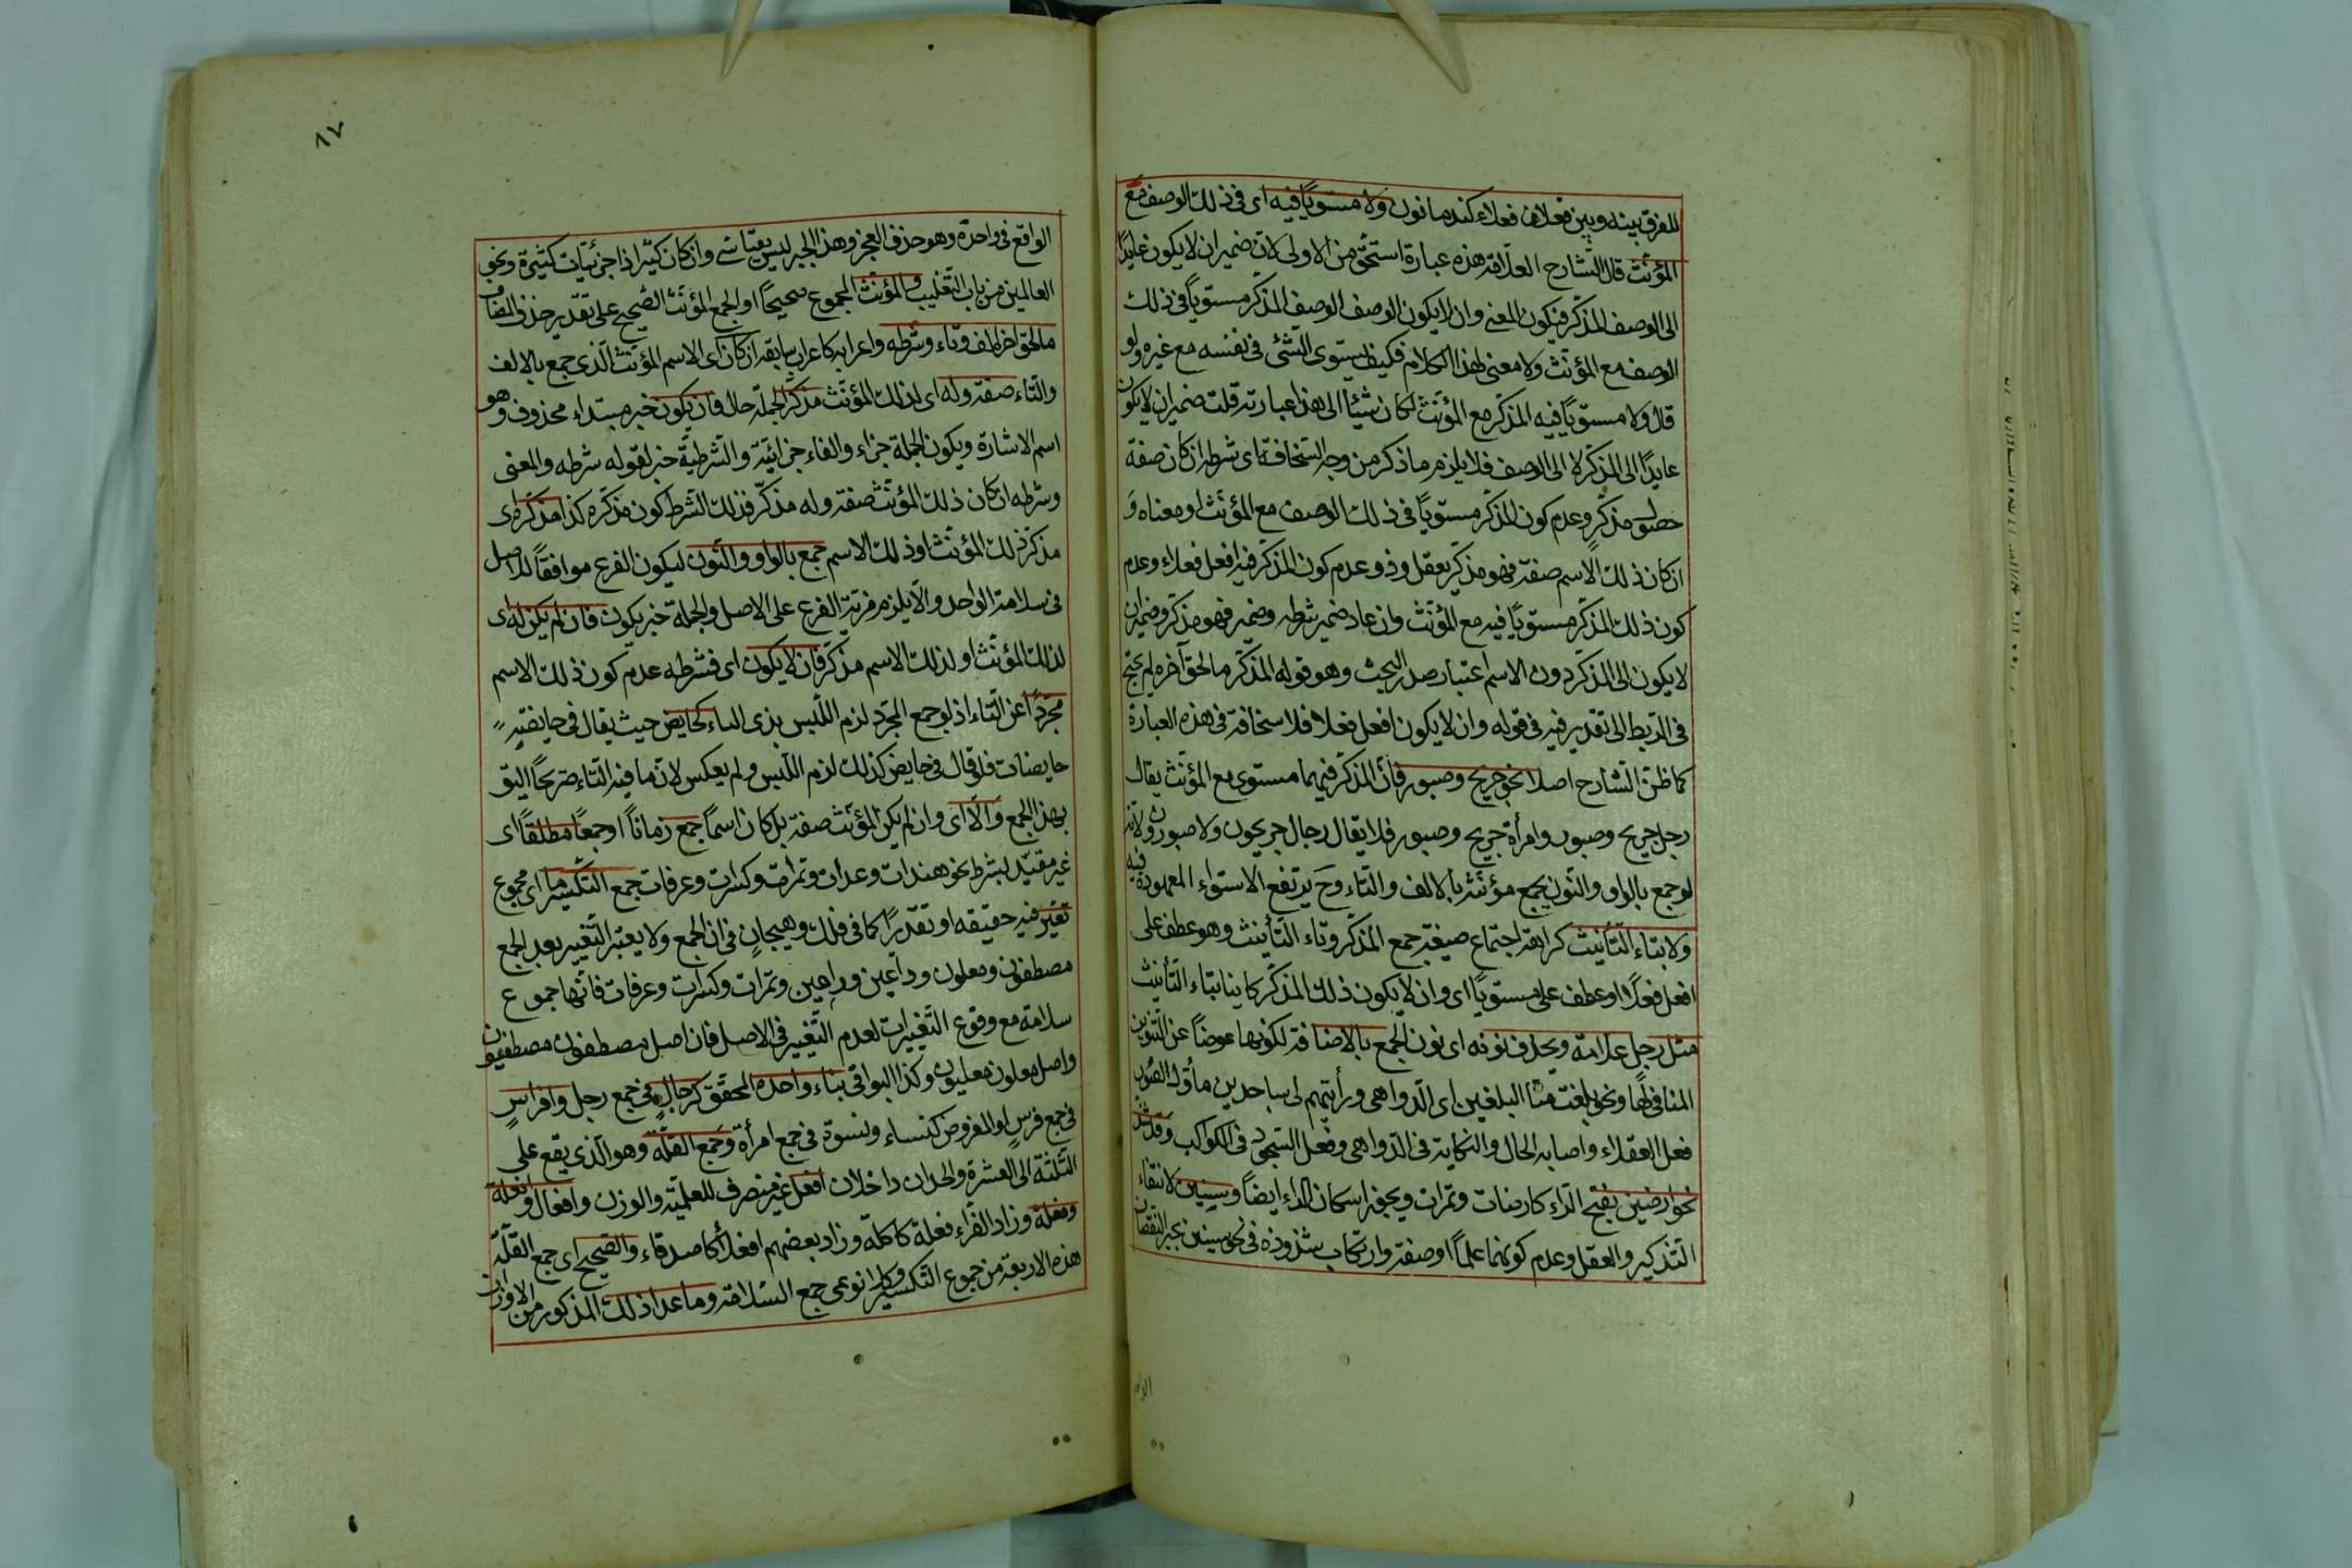 للفرق بينه وبين فعلان فعلاء كندمانون ولا مستويًا فيه اى فى ذلك الوصف مع
المؤنّث قال الشارح العلّامة هذه عبارة اسخف من الاولى لانّ ضمير ان لا يكون عايدًا
الى الوصف المذكّر فيكون المعنى وان لا يكون الوصف الوصف المذكّر مستويًا فى ذلك
الوصف مع المؤنّث ولا معنى لهذا الكلام فكيف يستوى الشئ فى نفسه مع غيره ولو
قال ولا مستويًا فيه المذكّر مع المؤنّث لكان شيئًا الى هنا عبارته قلت ضمير ان لا يكون
عايدًا الى المذكّر لا الى الوصف فلا يلزم ما ذكر من وجه السخافة اى شرطه ان كان صفة
حصول مذكّر وعدم كون المذكّر مستويًا فى ذلك الوصف مع المؤنّث او معناه و
ان كان ذلك الاسم صفة فهو مذكّر يعقل وذو عدم كون المذكّر فيه افعل فعلاء وعدم
كون ذلك المذكّر مستويًا فيه مع المؤنّث وان عاد ضمير شرطه وضمير فهو مذكّر وضمير ان
لا يكون الى المذكّر دون الاسم اعتبار صدر البحث وهو قوله المذكّر ما لحق آخره لم يحتج
فى الربط الى تقدير فيه فى قوله وان لا يكون افعل فعلا فلا سخافة فى هذه العبارة
كما ظنّ الشارح اصلا نحو جريح وصبور فانّ المذكّر فيهما مستوى مع المؤنّث يقال
رجل جريح وصبور وامرأة جريح وصبور فلا يقال رجال جريحون ولا صبورون ولانّه
لو جمع بالواو والنّون يجمع مؤنّثه بالالف والتاء وح يرتفع الاستواء المعهود فيه
ولا بتاء التّأنيث كراهة اجتماع صيغة جمع المذكّر وتاء التّأنيث وهو عطف على
افعل فعلاء او عطف على مستويًا اى وان لا يكون ذلك المذكّر كاينا بتاء التّأنيث
مثل رجل علّامة ويحذف نونه اى نون الجمع بالاضافة لكونها عوضًا عن التّنوين
المنافى لها ونحو بلغت منّا البلغين اى الدّواهى ورأيتهم لى ساجدين مأوّل
فعل العقلاء واصابه الحال والنكاية فى الدّواهى وفعل السجود فى الكواكب وقد شذّ
نحو ارضين بفتح الرّاء كارضات وتمرات ويجوز اسكان الراء ايضًا وسنين لانتفاء
التّذكير والعقل وعدم كونهما علمًا او صفة وارتكاب شذوذه فى نحو سنين بجبر النقصان
الواقع فى واحدة وهو حذف العجز وهذا الجبر ليس بقياسى وان كان كثيرا ذا جزئيّات كثيرة ونحو
العالمين من باب التّغليب والمؤنّث المجموع صحيحًا او الجمع المؤنّث الصّحيح على تقدير حذف المضاف
ما لحق اخره الف وتاء وشرطه واعرابه كاعراب سابقه ان كان اى الاسم المؤنّث الّذى جمع بالالف
والتّاء صفة وله اى لذلك المؤنّث مذكّر الجملة حال فان يكون خبر مبتداء محذوف وهو
اسم الاشارة ويكون الجملة جزاء والفاء جزائيّة والشّرطيّة خبر لقوله شرطه والمعنى
وشرطه ان كان ذلك المؤنّث صفة وله مذكّر فذلك الشّرط كون مذكّره كذا مذكّره اى
مذكّر ذلك المؤنّث او ذلك الاسم جمع بالواو والنّون ليكون الفرع موافقًا للاصل
فى سلامة الواحد والّا يلزم مزيّة الفرع على الاصل والجملة خبر يكون فان لم يكن له اى
لذلك المؤنّث او لذلك الاسم مذكّر فان لا يكون اى فشرطه عدم كون ذلك الاسم
مجرّدًا عن التّاء اذ لو جمع المجرّد لزم اللّبس بذى التاء كحايض حيث يقال فى حايضة
حايضات فلو قال فى حايض كذلك لزم اللّبس ولم يعكس لانّ ما فيه التّاء صريحًا اليق
بهذا الجمع والّا اى وان لم يكن المؤنّث صفة بل كان اسمًا جمع زمانًا او جمعًا مطلقًا اى
غير مقيّد بشرط نحو هندات وعدات وتمرات وكسرات وغرفات جمع التّكسير ما اى مجموع
تغيّر فيه حقيقة او تقديرًا كما فى فلك وهيجان فى ان الجمع ولا يعتبر التّغيير بعد الجمع
مصطفون ومعلون وداعين وراهين وتمرات وكسرات وغرفات فانّها جموع
سلامة مع وقوع التّغييرات لعدم التّغيير فى الاصل فان اصل مصطفون مصطفيون
واصل معلون معليون وكذا البواقى بناء واحده المحقّق كرجال فى جمع رجل وافراس
فى جمع فرس او المفروض كنساء ونسوة فى جمع امرأة وجمع القلّة وهو الّذى يقع على
الثّلثة الى العشرة والحدّان داخلان افعل غير منصرف للعلميّة والوزن وافعال وافعلة
وفعلة وزاد الفرّاء فعلة كاكلة وزاد بعضهم افعلاء كاصدقاء والصّحيح اى جمع القلّة
هذه الاربعة من جموع التّكسير وكلا نوعى جمع السّلامة وما عدا ذلك المذكور من الاوزان